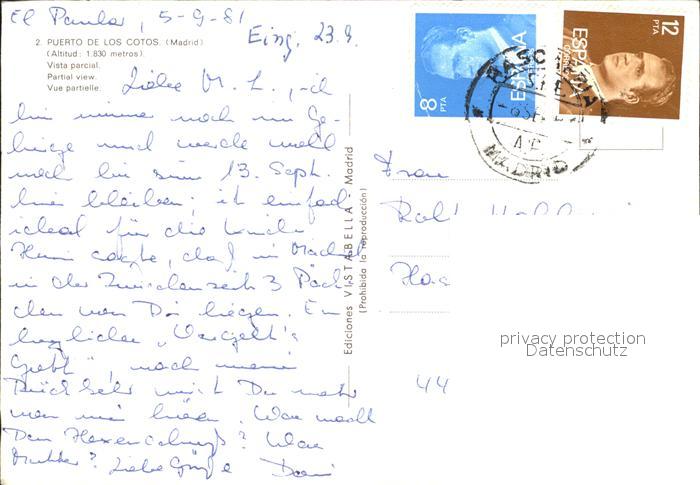 El Paular, 5-9-81
Eing. 23.9.
2. PUERTO DE LOS COTOS. (Madrid)
(Altitud: 1.830 metros).
Vista parcial.
Partial view.
Vue partielle.
Liebe M. L., ich
bin immer noch im Ge-
birge und werde wohl
noch bis zum 13. Sept.
hier bleiben; ist einfach
ideal für die Kinder
sagte, daß in Madrid
in der Zwischenzeit 3 Päck-
chen von Dir liegen. Ein
herzliches „Vergelt's
Gott", nach meiner
Rückkehr wirst Du mehr
von mir hören. Was macht
Dein Hexenschuß? Was
Mutter? Liebe Grüße
Ediciones VISTABELLA Madrid
(Prohibida la reproducción)
8 PTA
ESPAÑA
12 PTA
ESPAÑA
CORREOS
MADRID
Frau
44
privacy protection
Datenschutz